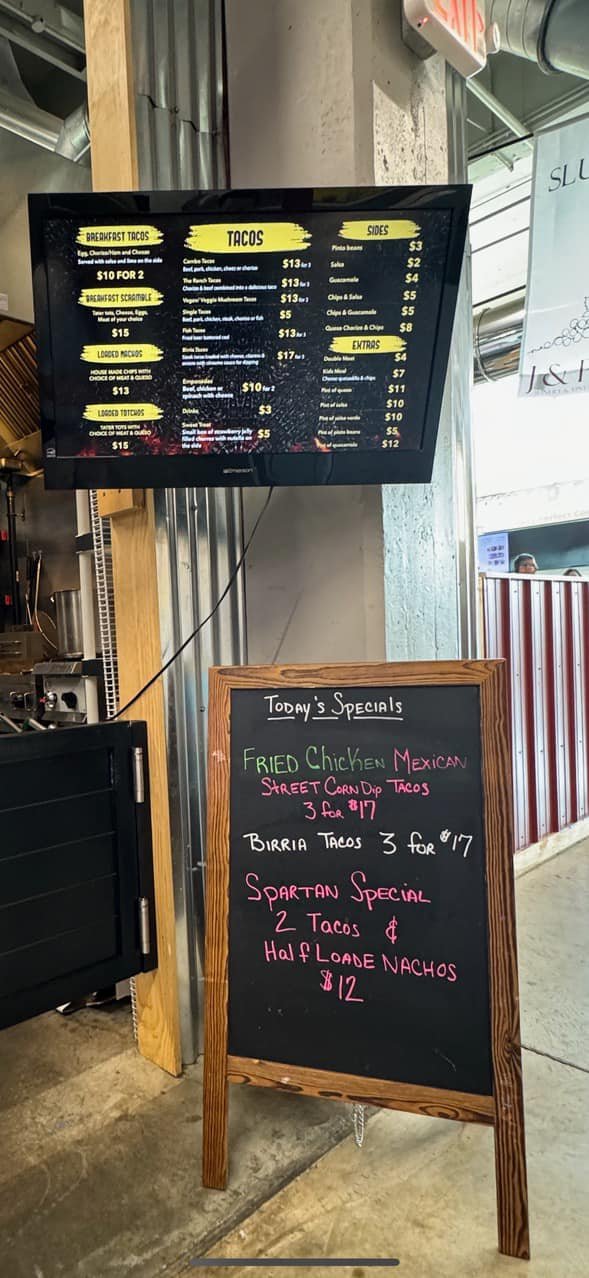 EXIT
SLU
J & H
BREAKFAST TACOS
Egg, Chorizo/Ham and Cheese
Served with salsa and lime on the side
$10 FOR 2
BREAKFAST SCRAMBLE
Tater tots, Cheese, Eggs,
Meat of your choice
$15
LOADED NACHOS
HOUSE MADE CHIPS WITH
CHOICE OF MEAT & QUESO
$13
LOADED TOTCHOS
TATER TOTS WITH
CHOICE OF MEAT & QUESO
$15
TACOS
Combo Tacos $13 for 3
Beef, pork, chicken, shroz or chorizo
The Ranch Tacos $13 for 3
Chorizo & beef combined into a delicious taco
Vegan/ Veggie Mushroom Tacos $13 for 3
Single Tacos $5
Beef, pork, chicken, steak, chorizo or fish
Fish Tacos $13 for 3
Fried beer battered cod
Birria Tacos $17 for 3
Steak tacos loaded with cheese, cilantro &
onions with consume sauce for dipping
Empanadas $10 for 2
Beef, chicken or
spinach with cheese
Drinks $3
Sweet Treat $5
Small box of strawberry jelly
filled churros with nutella on
the side
SIDES
Pinto beans $3
Salsa $2
Guacamole $4
Chips & Salsa $5
Chips & Guacamole $5
Queso Chorizo & Chips $8
EXTRAS
Double Meat $4
Kids Meal $7
Cheese quesadilla & chips
Pint of queso $11
Pint of salsa $10
Pint of salsa verde $10
Pint of pinto beans $5
Pint of guacamole $12
Emerson
TODAY'S SPECIALS
FRIED CHICKEN MEXICAN
STREET CORN DIP TACOS
3 FOR $17
BIRRIA TACOS 3 FOR $17
SPARTAN SPECIAL
2 TACOS &
HALF LOADE NACHOS
$12